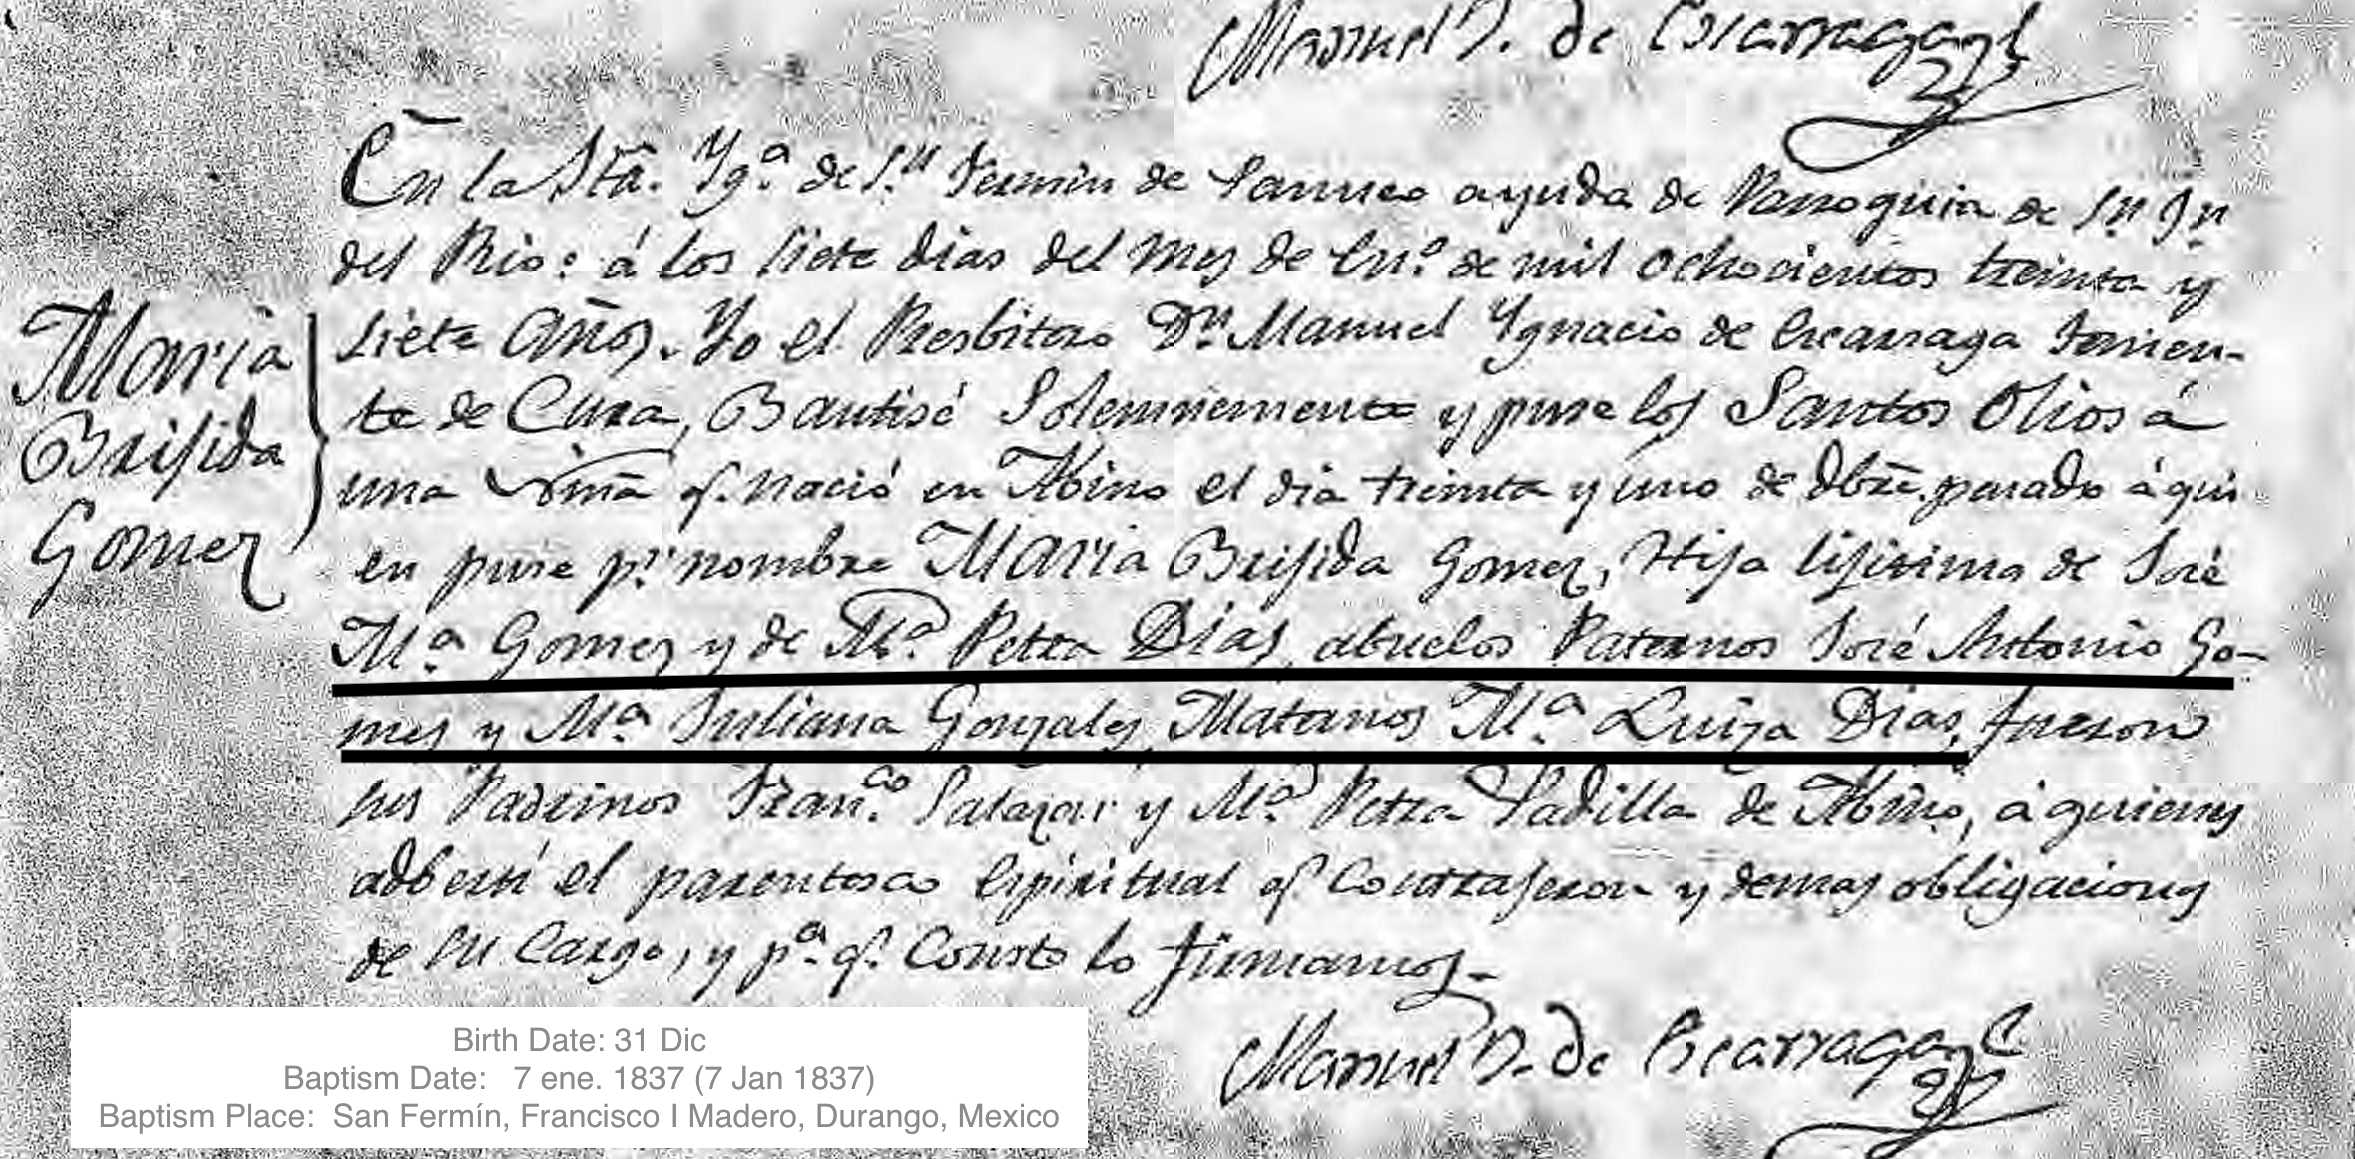 Manuel Y. de Escarraga
En la Sta. Yga. de Sn Fermin de Panuco ayuda de Parroquia de Sn Jn
del Rio: á los siete dias del mes de Eno. de mil ochocientos treinta y
siete años. Yo el Presbitero Dn. Manuel Ygnacio de Escarraga Tenien-
te de Cura, Bautisé Solemnemente y puse los Santos Olios á
una niña q. nació en Abino el dia treinta y uno de Dbre. pasado á qui
en puse pr. nombre Maria Brijida Gomez, Hija lijitima de José
Ma. Gomez y de Ma. Petra Dias, abuelos Paternos José Antonio Go-
mes y Ma. Juliana Gonzales, Matanos Ma. Luiza Dias, fueron
sus Padrinos Franco. Salazar y Ma. Petra Padilla de Abino, á quienes
adbertí el parentesco Espiritual q. Contrajeron y demas obligaciones
de su Cargo, y pa. q. Conste lo firmamos-
Maria
Brijida
Gomez
Manuel Y. de Escarraga
Birth Date: 31 Dic
Baptism Date: 7 ene. 1837 (7 Jan 1837)
Baptism Place: San Fermín, Francisco I Madero, Durango, Mexico